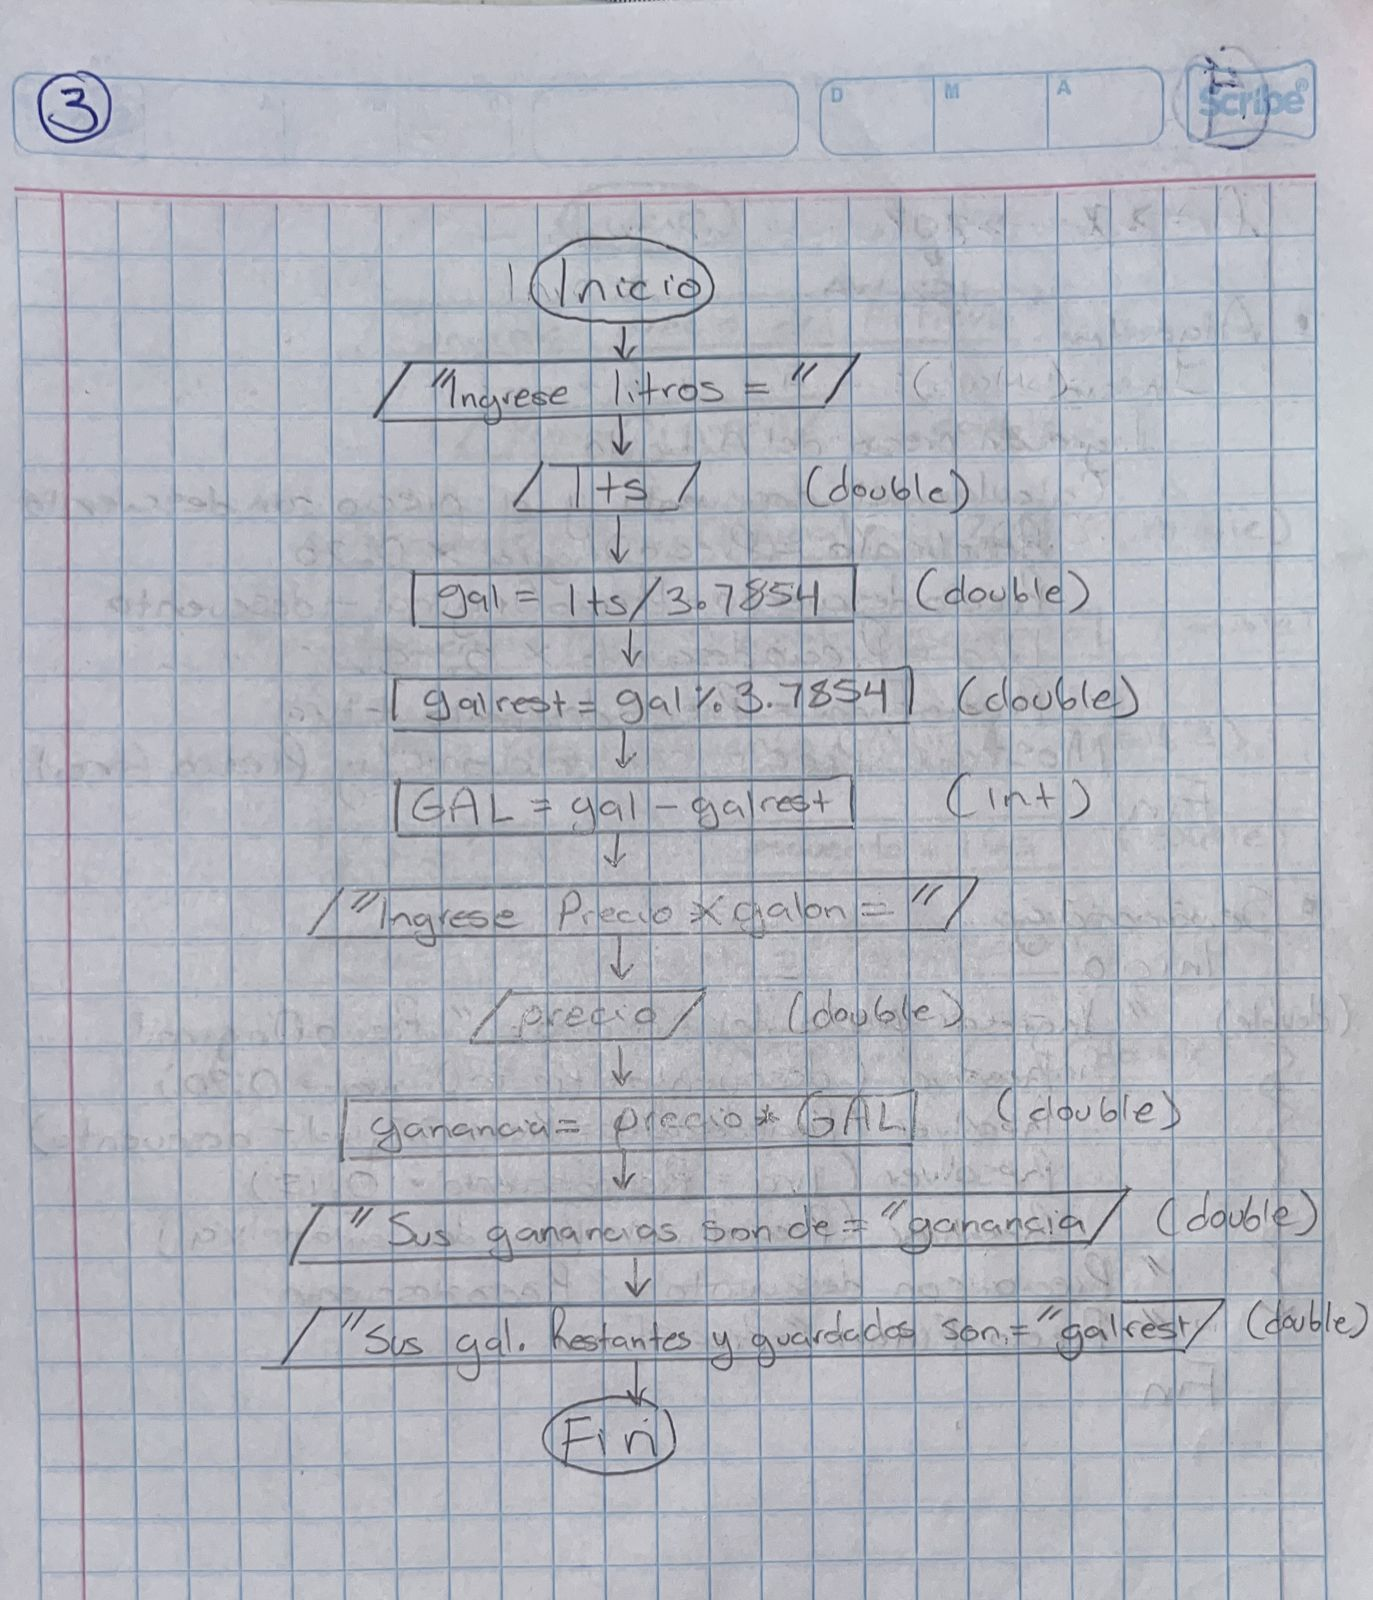 3
D M A
Scribe
Inicio
"Ingrese litros = "
lts (double)
gal = lts/3.7854 (double)
galrest = gal % 3.7854 (double)
GAL = gal - galrest (int)
"Ingrese Precio x galon = "
precio (double)
ganancia = precio * GAL (double)
"Sus ganancias son de = " ganancia (double)
"Sus gal. Restantes y guardados son = " galrest (double)
Fin